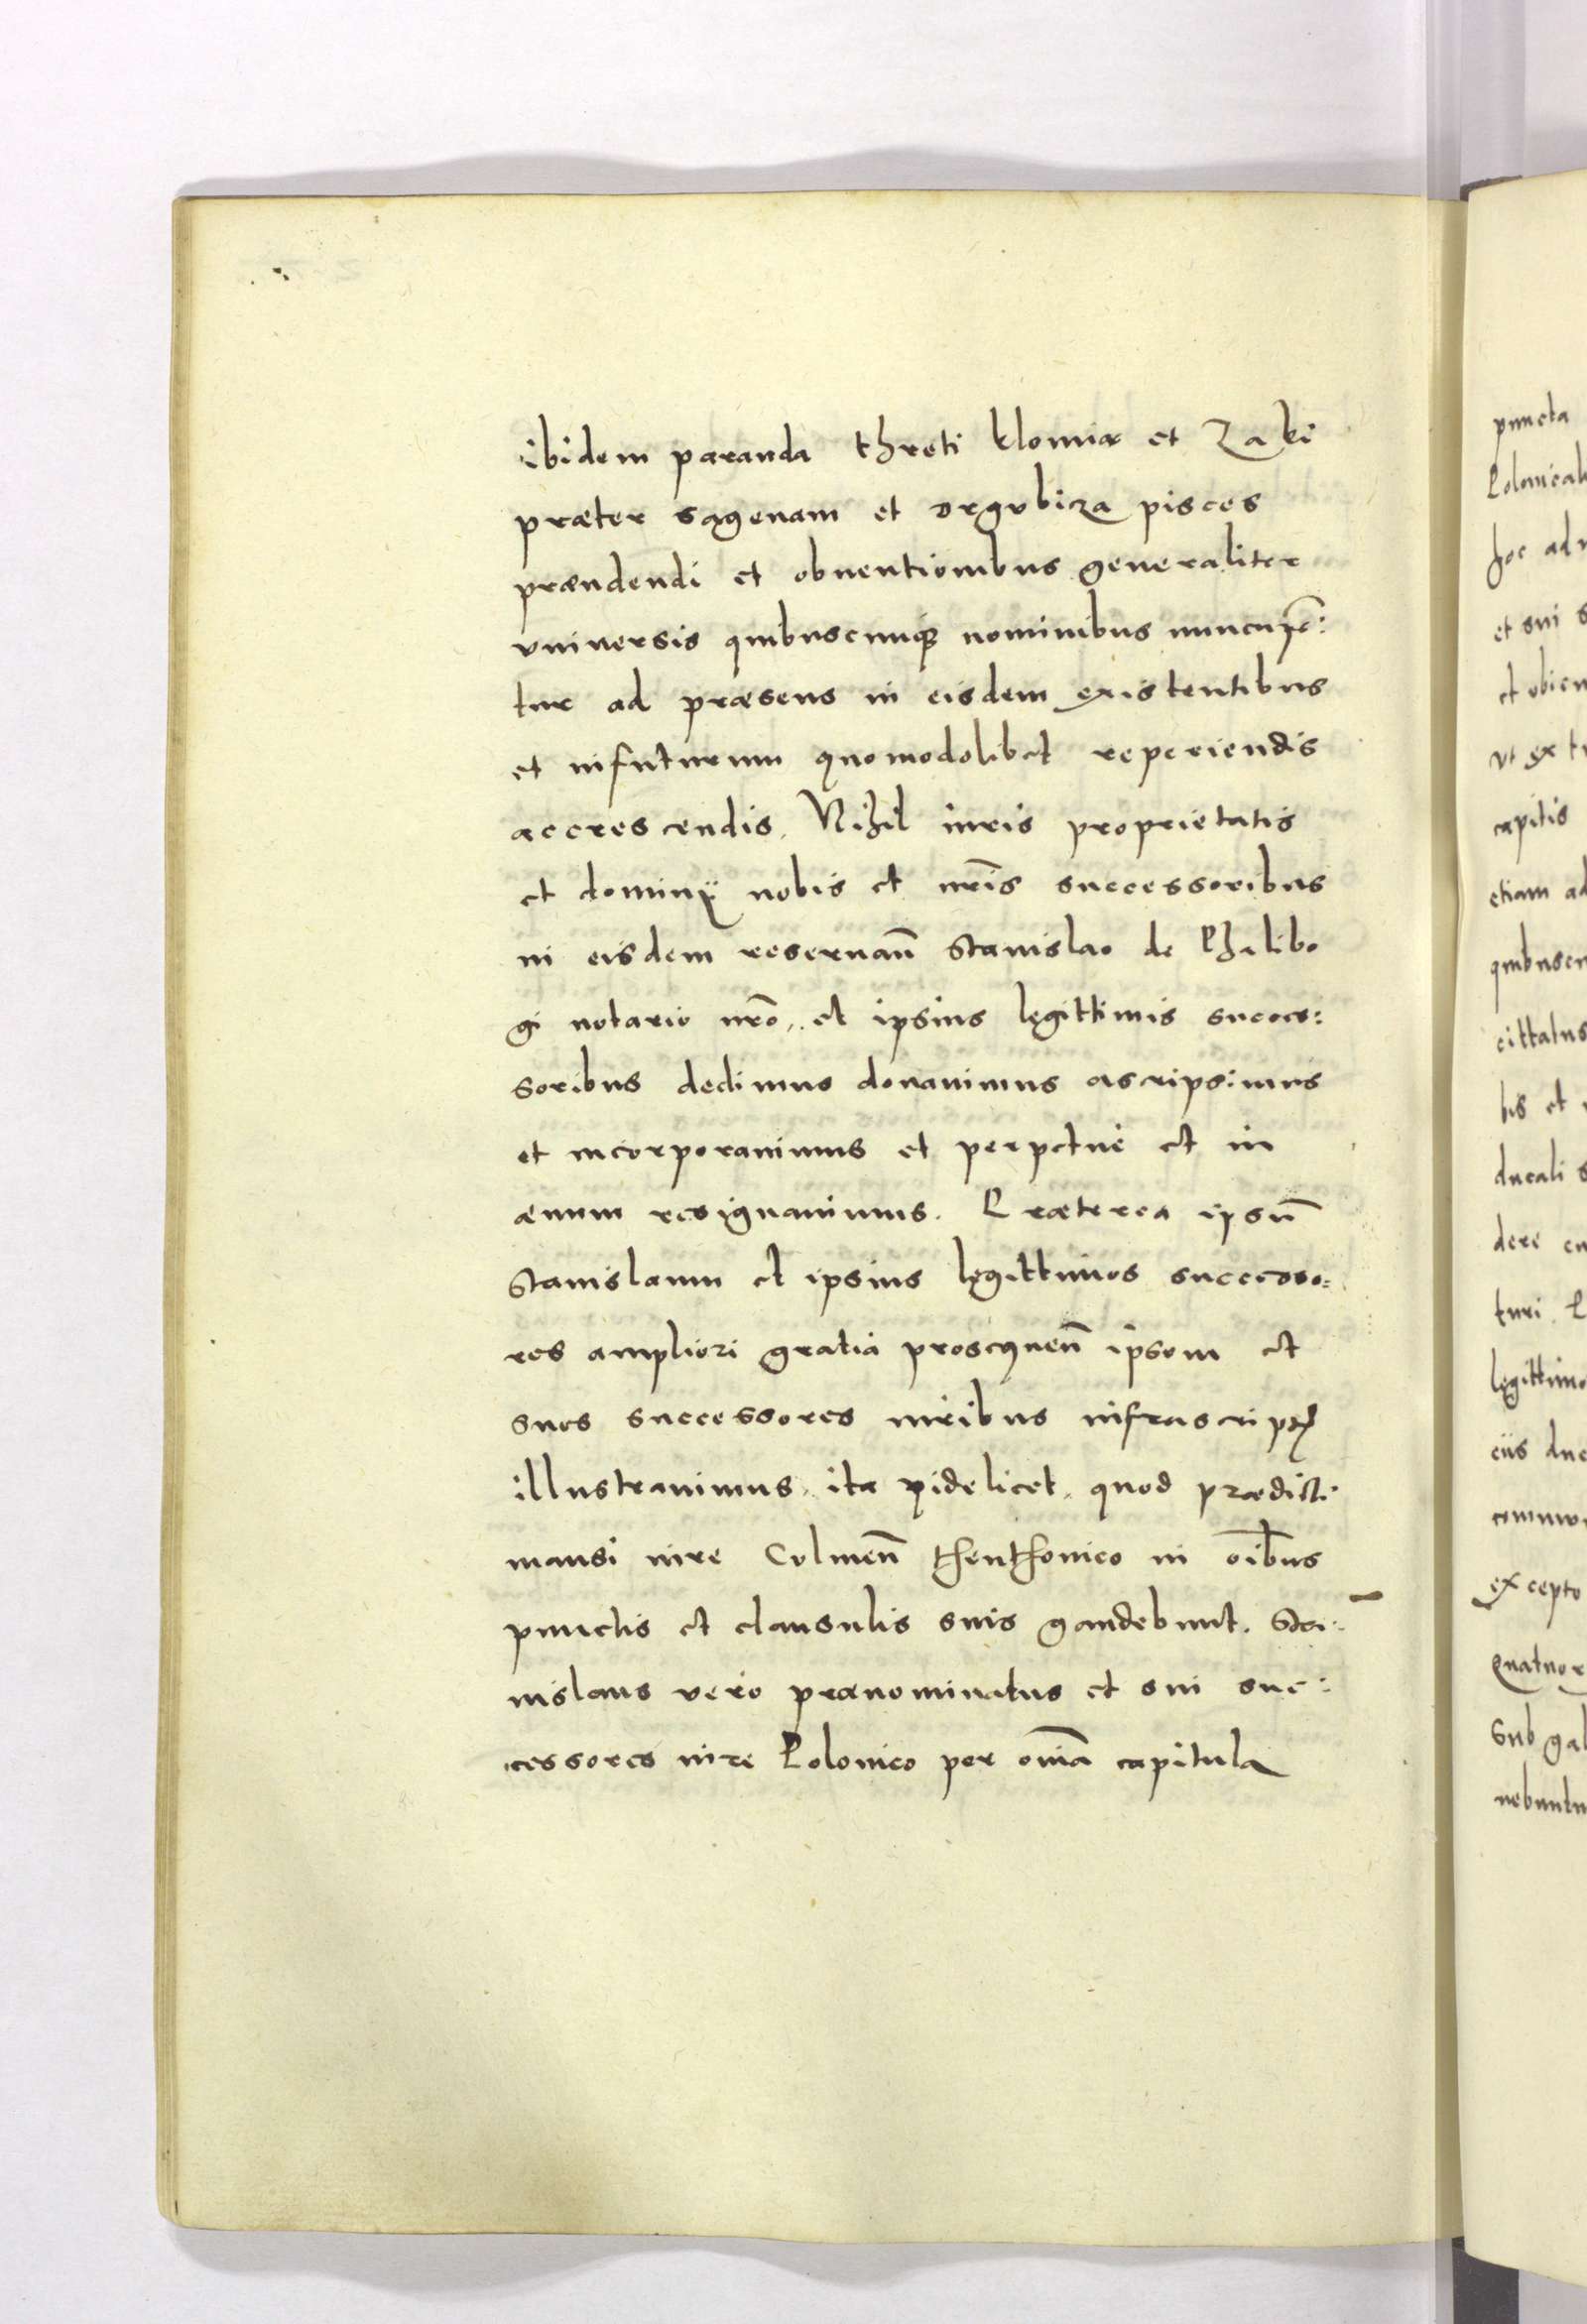 ibidem paranda threti klomia et Zaki
præter sagenam et orgvbicza pisces
prændendi et obuentionibus generaliter
vniuersis quibuscunque nominibus nuncupe:
tur ad præsens in eisdem existentibus
et infuturum quomodolibet reperiendis
accrescendis. Nihil iuris proprietatis
et dominÿ nobis et nr̃is successoribus
in eisdem reseruañ Stanislao de Chalibo
gi notario nr̃o, et ipsius legittimis succes:
soribus dedimus donauimus ascripsimus
et incorporauimus et perpetue et in
æuum resignauimus. Præterea ipsũ
Stanislaum et ipsius legittimos successo:
res ampliori gratia prosequeñ ipsom et
suos successores iuribus infrascriptꝭ
illustrauimus, ita videlicet, quod prædicti
mansi iure Culmeñ thenthonico in oĩbus
punctis et clausulis suis gaudebunt. Sta:
nislaus vero prænominatus et sui suc:
cessores iure Polonico per om̃ia capitula
puncta
Polonical
hoc ad
et sui s
et obien
vt ex t
capitis
etiam ad
quibuscu
cittatus
bis et
ducali s
dere cu
turi. P
legittimo
eiis duc
comuni
excepto
Quatuor
Sub gal
nebuntu